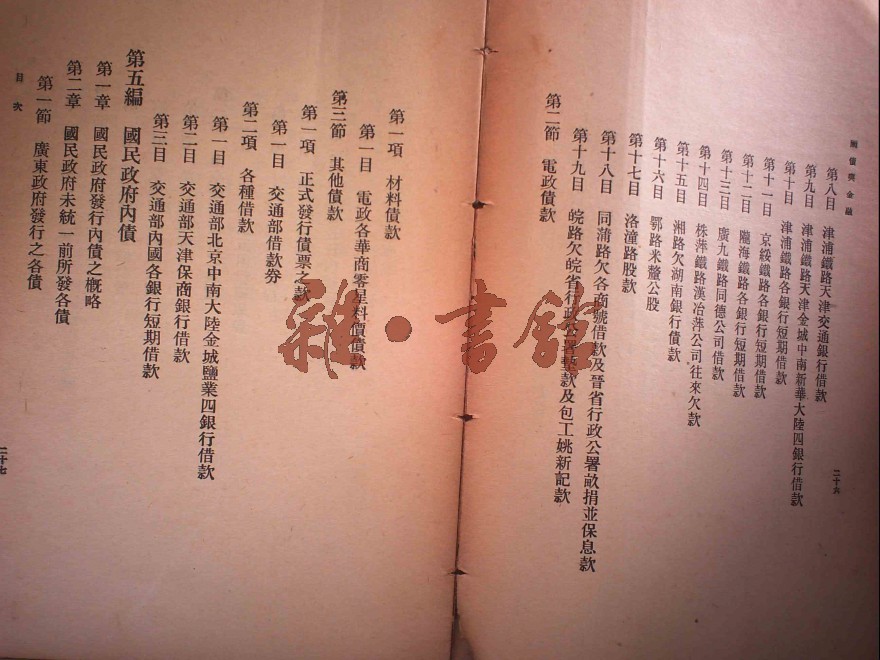 國債與金融
第八目 津浦鐵路天津交通銀行借款
第九目 津浦鐵路天津金城中南新華大陸四銀行借款
第十目 津浦鐵路各銀行短期借款
第十一目 京綏鐵路各銀行短期借款
第十二目 隴海鐵路各銀行短期借款
第十三目 廣九鐵路同德公司借款
第十四目 株萍鐵路漢冶萍公司往來欠款
第十五目 湘路欠湖南銀行債款
第十六目 鄂路米釐公股
第十七目 洛潼路股款
第十八目 同蒲路欠各商號借款及晉省行政公署畝捐並保息款
第十九目 皖路欠皖省行政公署款及包工姚新記款
第二節 電政債款
二十六
第一項 材料債款
第一目 電政各華商零星料價債款
第三節 其他債款
第一項 正式發行債票之款
第一目 交通部借款券
第二項 各種借款
第一目 交通部北京中南大陸金城鹽業四銀行借款
第二目 交通部天津保商銀行借款
第三目 交通部內國各銀行短期借款
第五編 國民政府內債
第一章 國民政府發行內債之概略
第二章 國民政府未統一前所發各債
第一節 廣東政府發行之各債
目次
二十七
雜·書館